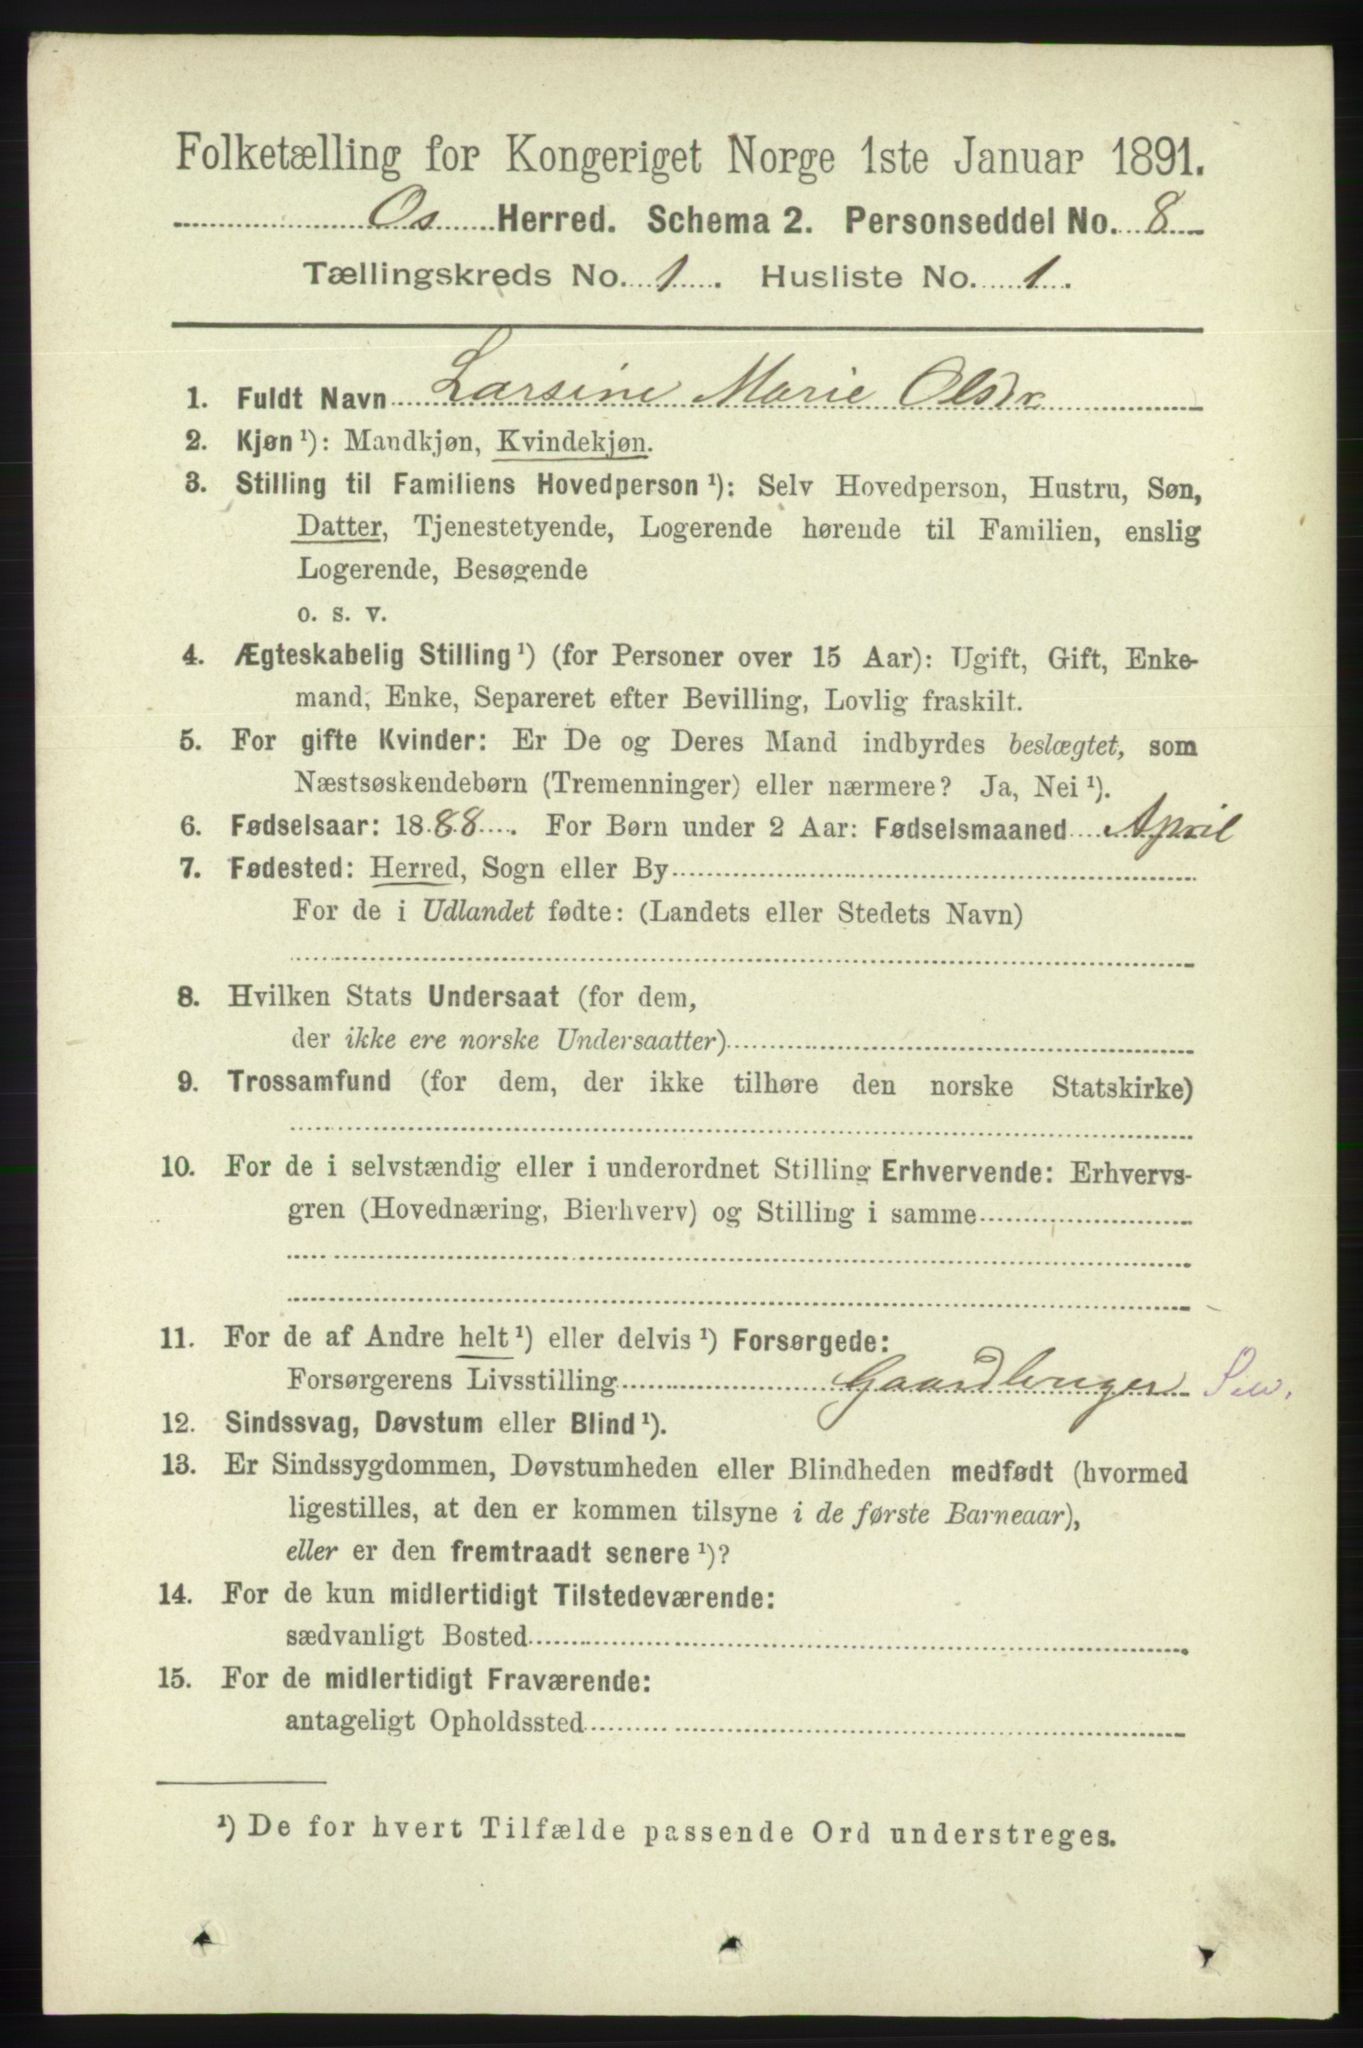 Folketælling for Kongeriget Norge 1ste Januar 1891.
Os Herred. Schema 2. Personseddel No. 8
Tællingskreds No. 1. Husliste No. 1.
1. Fuldt Navn Larsine Marie Olsdr
2. Kjøn ¹): Mandkjøn, Kvindekjøn.
3. Stilling til Familiens Hovedperson ¹): Selv Hovedperson, Hustru, Søn,
Datter, Tjenestetyende, Logerende hørende til Familien, enslig
Logerende, Besøgende
o. s. v.
4. Ægteskabelig Stilling ¹) (for Personer over 15 Aar): Ugift, Gift, Enke-
mand, Enke, Separeret efter Bevilling, Lovlig fraskilt.
5. For gifte Kvinder: Er De og Deres Mand indbyrdes beslægtet, som
Næstsøskendebørn (Tremenninger) eller nærmere? Ja, Nei ¹).
6. Fødselsaar: 1888. For Børn under 2 Aar: Fødselsmaaned April
7. Fødested: Herred, Sogn eller By
For de i Udlandet fødte: (Landets eller Stedets Navn)
8. Hvilken Stats Undersaat (for dem,
der ikke ere norske Undersaatter)
9. Trossamfund (for dem, der ikke tilhøre den norske Statskirke)
10. For de i selvstændig eller i underordnet Stilling Erhvervende: Erhvervs-
gren (Hovednæring, Bierhverv) og Stilling i samme
11. For de af Andre helt ¹) eller delvis ¹) Forsørgede:
Forsørgerens Livsstilling Gaardbruger
12. Sindssvag, Døvstum eller Blind ¹).
13. Er Sindssygdommen, Døvstumheden eller Blindheden medfødt (hvormed
ligestilles, at den er kommen tilsyne i de første Barneaar),
eller er den fremtraadt senere ¹)?
14. For de kun midlertidigt Tilstedeværende:
sædvanligt Bosted
15. For de midlertidigt Fraværende:
antageligt Opholdssted
¹) De for hvert Tilfælde passende Ord understreges.